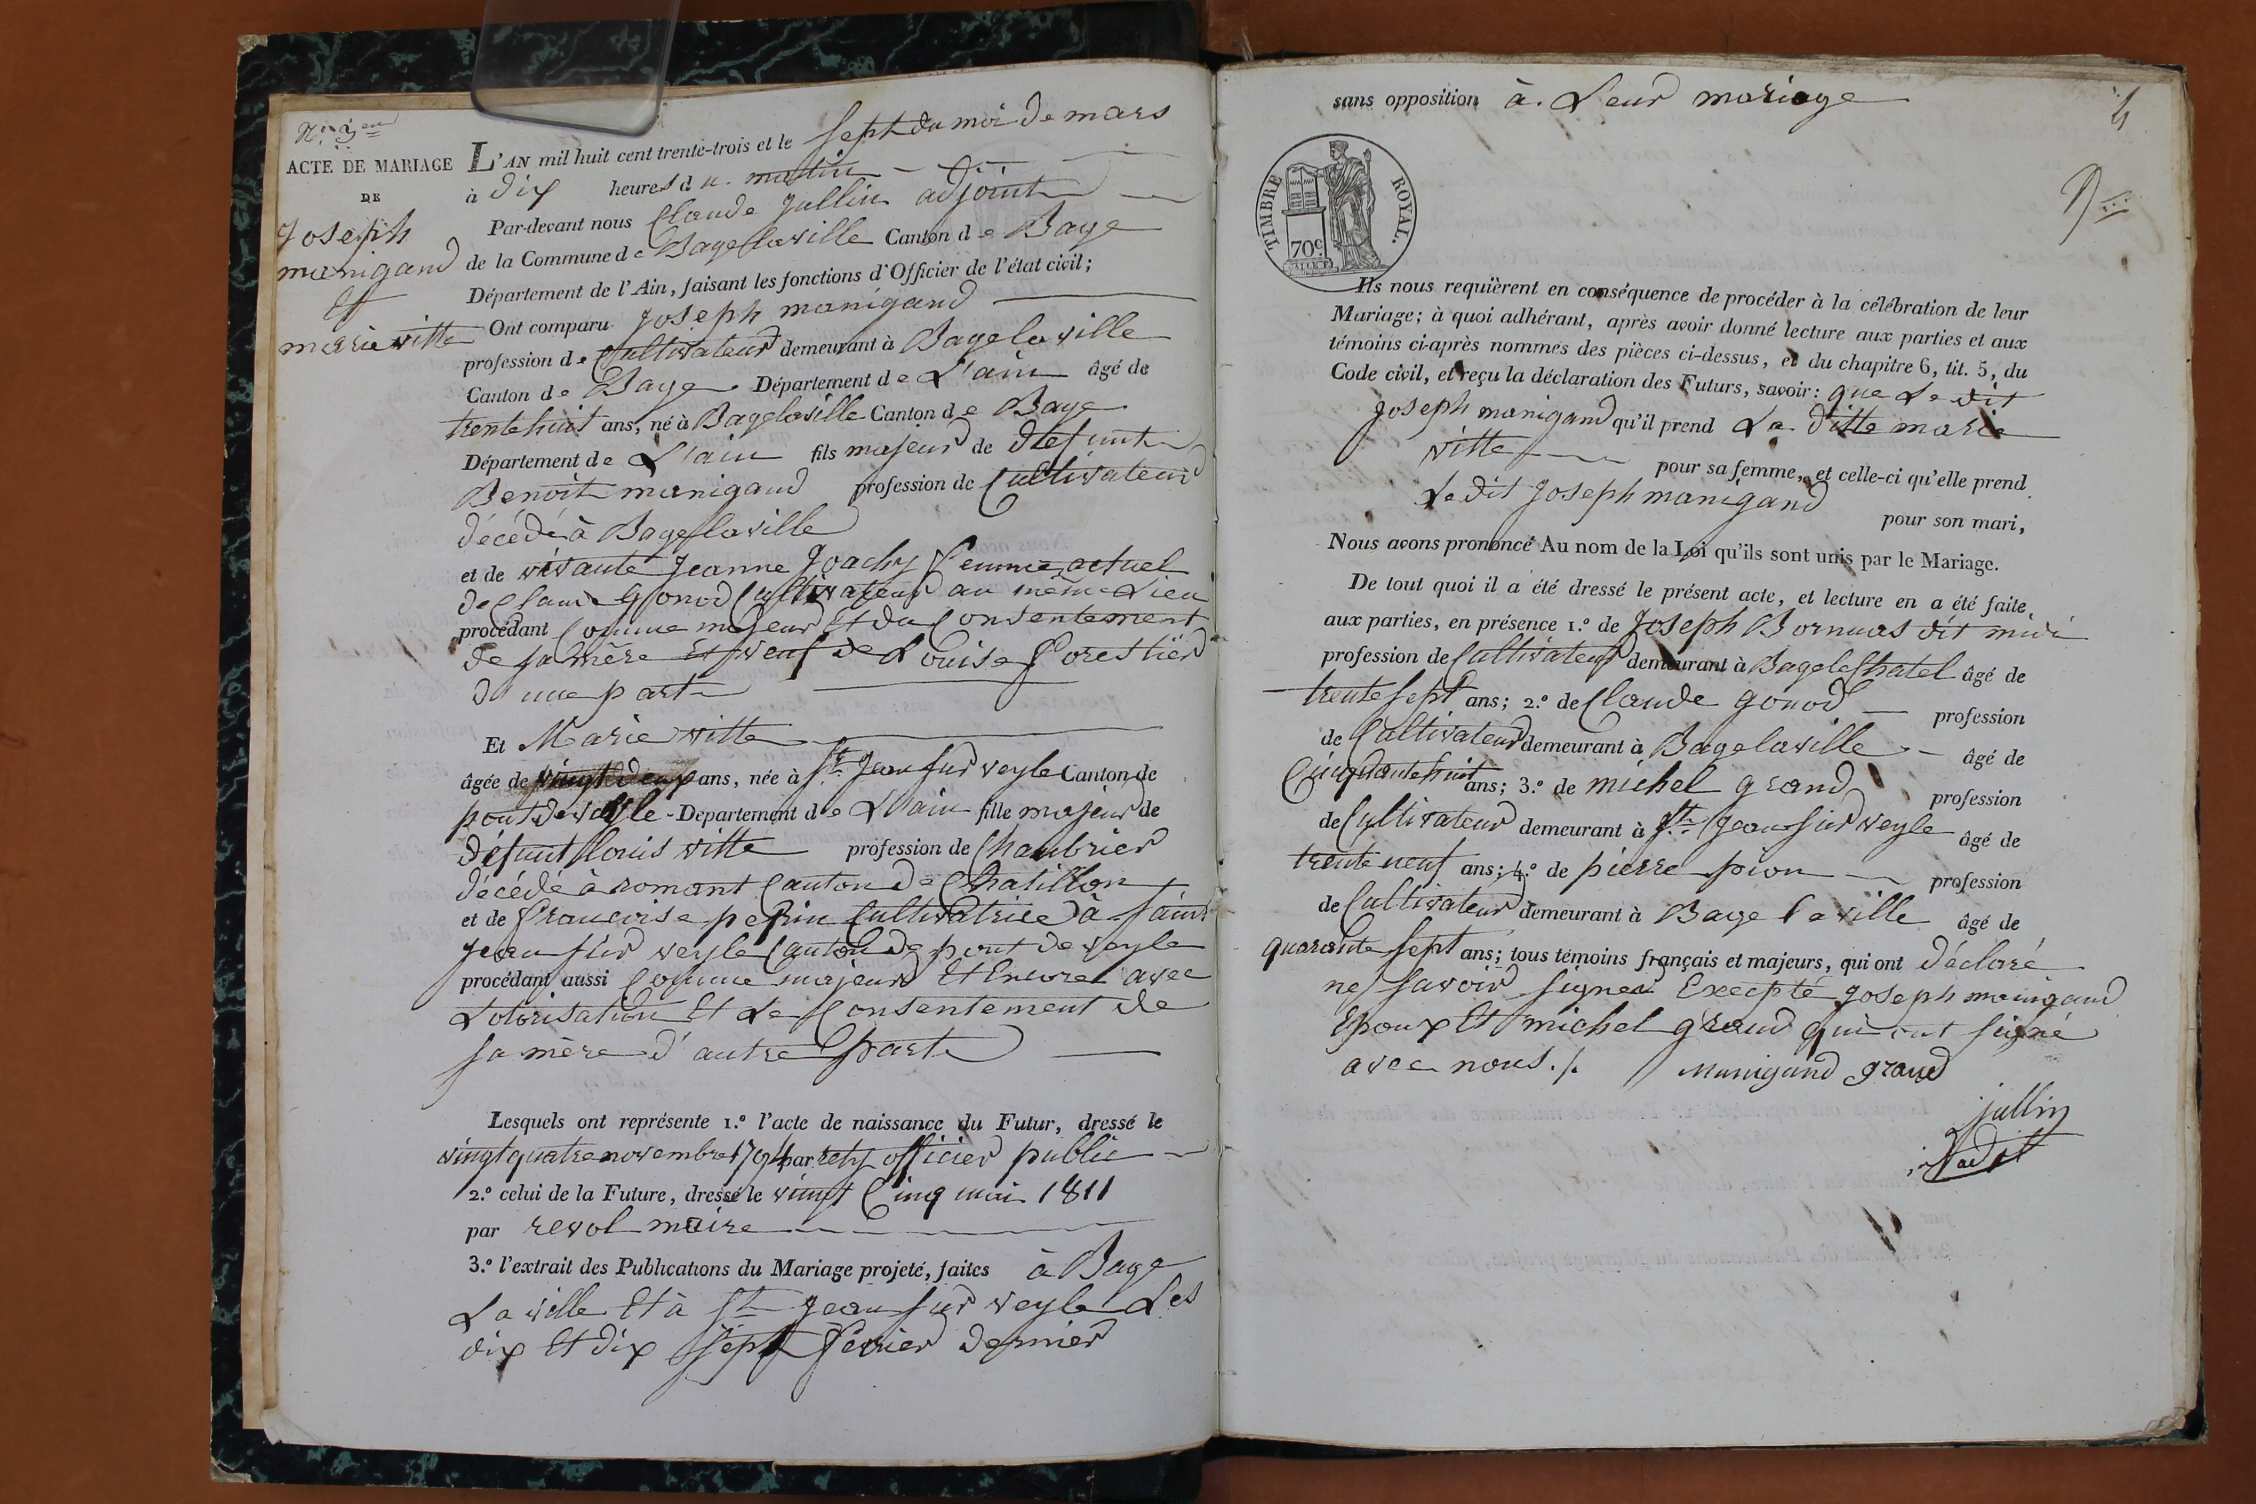 ACTE DE MARIAGE
DE
Joseph
manigand
Et
marie vitte
L'AN mil huit cent trente-trois et le sept du moi de mars
à dix heures du matin
Par-devant nous Claude Jullin adjoint
de la Commune de Bagelaville Canton de Bage
Département de l'Ain, faisant les fonctions d'Officier de l'état civil;
Ont comparu Joseph manigand
profession de Cultivateur demeurant à Bagelaville
Canton de Bage Département de L'ain âgé de
trente huit ans, né à Bagelaville Canton de Bage
Département de L'ain fils majeur de défunt
Benoit manigand profession de Cultivateur
décédé à Bagelaville
et de vivante Jeanne Joachy femme actuel
de Claude Gonod Cultivateur au même Lieu
procédant Comme majeur Et du Consentement
de sa mère Et veuf de Louise Forestier
d'une part
Et Marie vitte
âgée de vingt deux ans, née à St Jean sur veyle Canton de
pont de veyle Département de L'ain fille majeur de
défunt Louis vitte profession de Chanbrier
décédé à romant Canton de Chatillon
et de Francoise pepin Cultivatrice à saint
Jean sur veyle Canton de pont de veyle
procédant aussi Comme majeur Et Encore avec
Lotorisation Et Le Consentement de
sa mère d'autre part
Lesquels ont représenté 1.° l'acte de naissance du Futur, dressé le
vingt quatre novembre 1794 par rety officier public
2.° celui de la Future, dressé le vingt Cinq mai 1811
par revol maire
3.° l'extrait des Publications du Mariage projeté, faites à Bage
La ville Et à St Jean sur veyle Les
dix Et dix sept fevrier dernier
sans opposition à Leur mariage
4
TIMBRE ROYAL.
70c
Ils nous requièrent en conséquence de procéder à la célébration de leur
Mariage; à quoi adhérant, après avoir donné lecture aux parties et aux
témoins ci-après nommés des pièces ci-dessus, et du chapitre 6, tit. 5, du
Code civil, et reçu la déclaration des Futurs, savoir: que Le dit
Joseph manigand qu'il prend La ditte marie
vitte pour sa femme, et celle-ci qu'elle prend
Le dit Joseph manigand pour son mari,
Nous avons prononcé Au nom de la Loi qu'ils sont unis par le Mariage.
De tout quoi il a été dressé le présent acte, et lecture en a été faite,
aux parties, en présence 1.° de Joseph Bornuas dit midi
profession de Cultivateur demeurant à Bagelechatel âgé de
trente sept ans; 2.° de Claude gonod profession
de Cultivateur demeurant à Bagelaville âgé de
Cinquante huit ans; 3.° de michel grand profession
de Cultivateur demeurant à St Jean sur veyle âgé de
trente neuf ans; 4.° de pierre pion profession
de Cultivateur demeurant à Bage laville âgé de
quarante sept ans; tous témoins français et majeurs, qui ont déclaré
ne savoir signer Excepté Joseph manigand
Epoux Et michel grand qui ont signé
avec nous ./.
Manigand grand
jullin
adjt